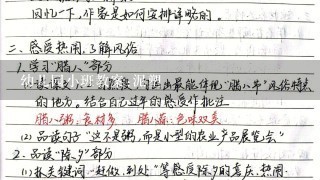 回忆一下,作家是如何安排详略的。
二、感受热闹,了解风俗
1.学习“腊八”部分
出最能体现“腊八节”风俗特点
的地方。结合自己过年的感受作批注
腊八粥:食材多 腊八蒜:色味双美
(2)品读句子“这不是粥,而是小型的农业产品展览会”
2.品读“除夕”部分
(1)抓关键词“赶做、到处”等感受除夕的喜庆、热闹
幼儿园小班教案 泥塑